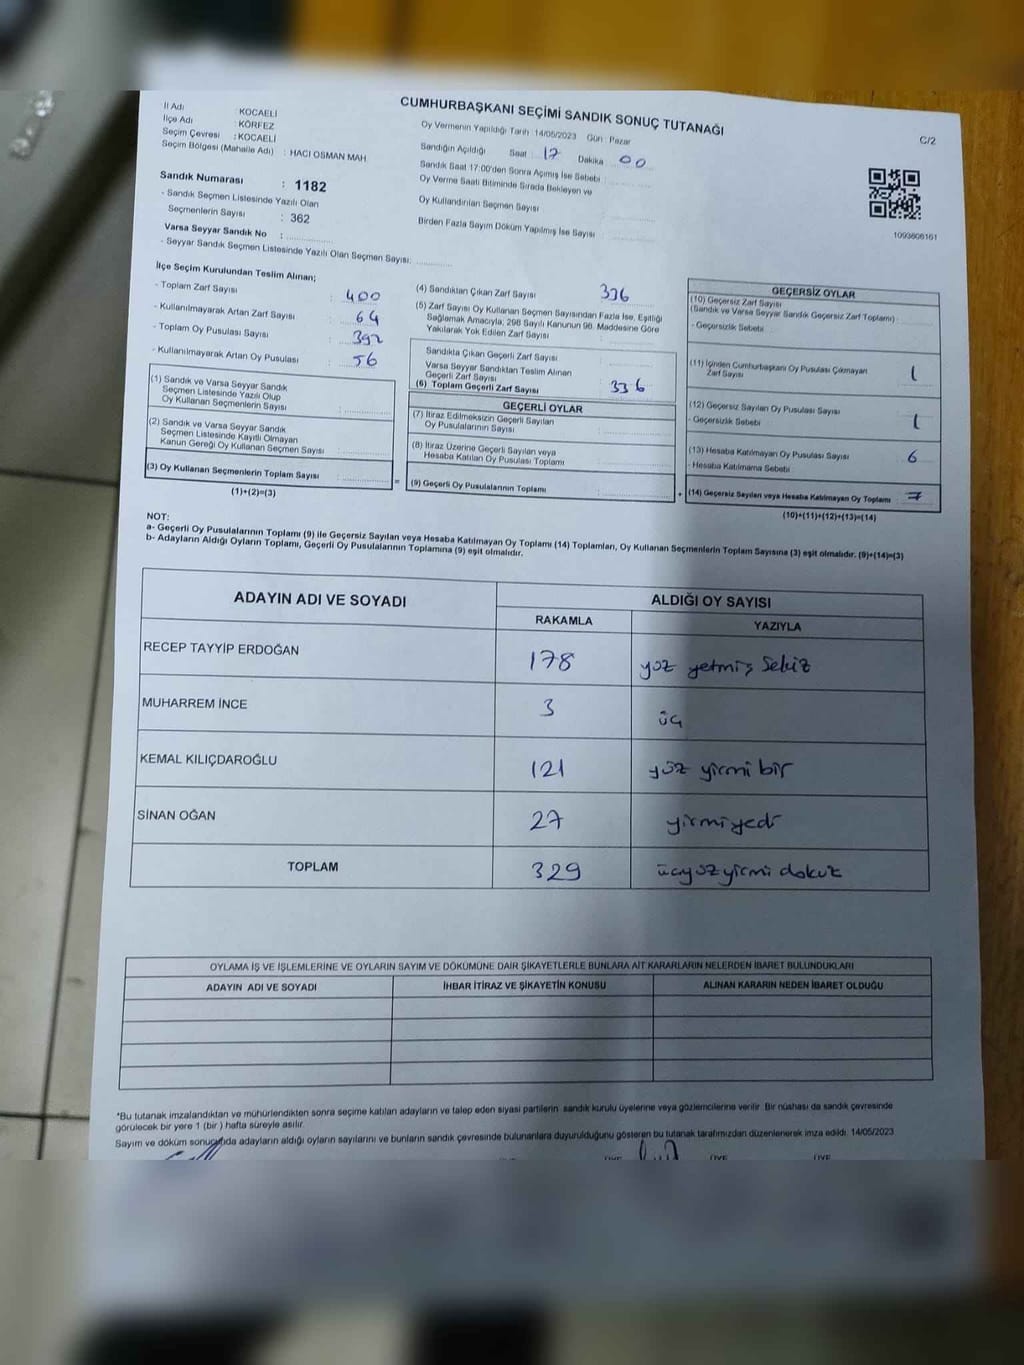 CUMHURBAŞKANI SEÇİMİ SANDIK SONUÇ TUTANAĞI
C/2
İl Adı : KOCAELİ
İlçe Adı : KÖRFEZ
Seçim Çevresi : KOCAELİ
Seçim Bölgesi (Mahalle Adı) : HACI OSMAN MAH
Oy Vermenin Yapıldığı Tarih : 14/05/2023 Gün : Pazar
Sandığın Açıldığı Saat 17 Dakika 00
Sandık Saat 17:00'den Sonra Açımış İse Sebebi :
Oy Verme Saati Bitiminde Sırada Bekleyen ve
Oy Kullandırılan Seçmen Sayısı
Birden Fazla Sayım Döküm Yapılmış İse Sayısı :
1093606161
Sandık Numarası : 1182
- Sandık Seçmen Listesinde Yazılı Olan
Seçmenlerin Sayısı : 362
Varsa Seyyar Sandık No :
- Seyyar Sandık Seçmen Listesinde Yazılı Olan Seçmen Sayısı:
İlçe Seçim Kurulundan Teslim Alınan;
- Toplam Zarf Sayısı : 400
- Kullanılmayarak Artan Zarf Sayısı : 64
- Toplam Oy Pusulası Sayısı : 392
- Kullanılmayarak Artan Oy Pusulası : 56
(1) Sandık ve Varsa Seyyar Sandık
Seçmen Listesinde Yazılı Olup
Oy Kullanan Seçmenlerin Sayısı :
(2) Sandık ve Varsa Seyyar Sandık
Seçmen Listesinde Kayıtlı Olmayan
Kanun Gereği Oy Kullanan Seçmen Sayısı :
(3) Oy Kullanan Seçmenlerin Toplam Sayısı :
(1)+(2)=(3)
(4) Sandıktan Çıkan Zarf Sayısı : 336
(5) Zarf Sayısı Oy Kullanan Seçmen Sayısından Fazla İse, Eşitliği
Sağlamak Amacıyla, 298 Sayılı Kanunun 98. Maddesine Göre
Yakılarak Yok Edilen Zarf Sayısı :
Sandıkta Çıkan Geçerli Zarf Sayısı :
Varsa Seyyar Sandıktan Teslim Alınan
Geçerli Zarf Sayısı :
(6) Toplam Geçerli Zarf Sayısı : 336
GEÇERLİ OYLAR
(7) İtiraz Edilmeksizin Geçerli Sayılan
Oy Pusulalarının Sayısı :
(8) İtiraz Üzerine Geçerli Sayılan veya
Hesaba Katılan Oy Pusulası Toplamı :
= (9) Geçerli Oy Pusulalarının Toplamı : +
GEÇERSİZ OYLAR
(10) Geçersiz Zarf Sayısı
(Sandık ve Varsa Seyyar Sandık Geçersiz Zarf Toplamı) :
- Geçersizlik Sebebi :
(11) İçinden Cumhurbaşkanı Oy Pusulası Çıkmayan
Zarf Sayısı : 1
(12) Geçersiz Sayılan Oy Pusulası Sayısı : 1
- Geçersizlik Sebebi
(13) Hesaba Katılmayan Oy Pusulası Sayısı : 6
- Hesaba Katılmama Sebebi :
(14) Geçersiz Sayılan veya Hesaba Katılmayan Oy Toplamı : 7
(10)+(11)+(12)+(13)=(14)
NOT:
a- Geçerli Oy Pusulalarının Toplamı (9) ile Geçersiz Sayılan veya Hesaba Katılmayan Oy Toplamı (14) Toplamları, Oy Kullanan Seçmenlerin Toplam Sayısına (3) eşit olmalıdır. (9)+(14)=(3)
b- Adayların Aldığı Oyların Toplamı, Geçerli Oy Pusulalarının Toplamına (9) eşit olmalıdır.
ADAYIN ADI VE SOYADI ALDIĞI OY SAYISI
RAKAMLA YAZIYLA
RECEP TAYYİP ERDOĞAN 178 yüz yetmiş Sekiz
MUHARREM İNCE 3 üç
KEMAL KILIÇDAROĞLU 121 yüz yirmi bir
SİNAN OĞAN 27 yirmiyedi
TOPLAM 329 üçyüzyirmi dokuz
OYLAMA İŞ VE İŞLEMLERİNE VE OYLARIN SAYIM VE DÖKÜMÜNE DAİR ŞİKAYETLERLE BUNLARA AİT KARARLARIN NELERDEN İBARET BULUNDUKLARI
ADAYIN ADI VE SOYADI İHBAR İTİRAZ VE ŞİKAYETİN KONUSU ALINAN KARARIN NEDEN İBARET OLDUĞU
*Bu tutanak imzalandıktan ve mühürlendikten sonra seçime katılan adayların ve talep eden siyasi partilerin sandık kurulu üyelerine veya gözlemcilerine verilir. Bir nüshası da sandık çevresinde
görülecek bir yere 1 (bir ) hafta süreyle asılır.
Sayım ve döküm sonucunda adayların aldığı oyların sayılarını ve bunların sandık çevresinde bulunanlara duyurulduğunu gösteren bu tutanak tarafımızdan düzenlenerek imza edildi. 14/05/2023
ÜYE ÜYE ÜYE